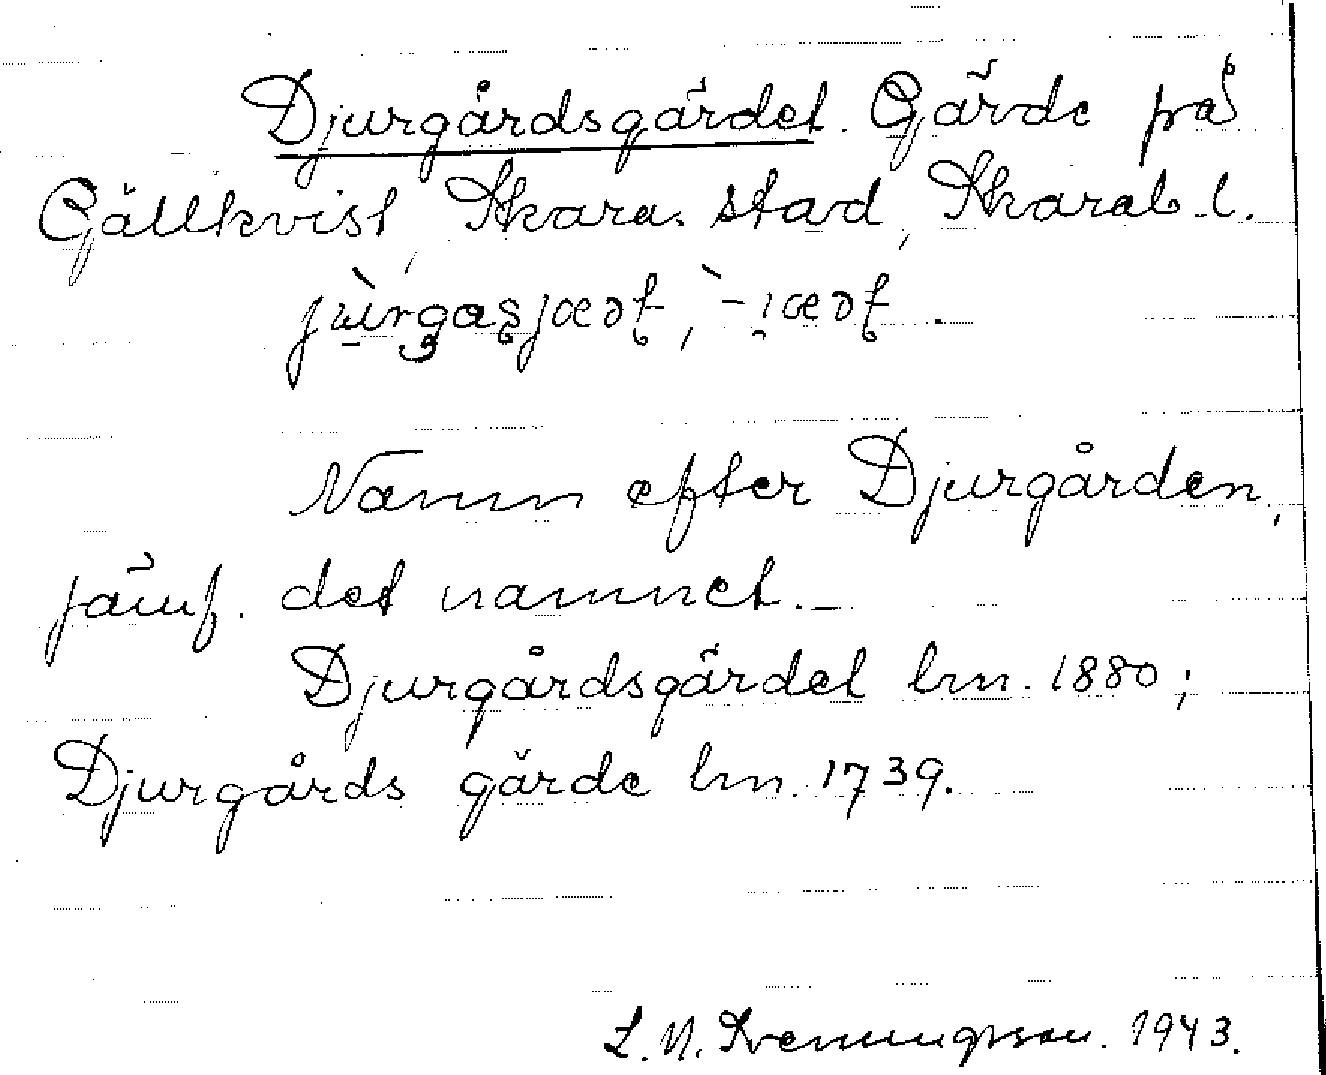 Djurgårdsgärdet. Gärde på
Gällkvist, Skara stad, Skarab. l.
Namn efter Djurgården,
jämf. det namnet.
Djurgårdsgärdet lm. 1880;
Djurgårds gärde lm. 1739.
L. N. 1943.